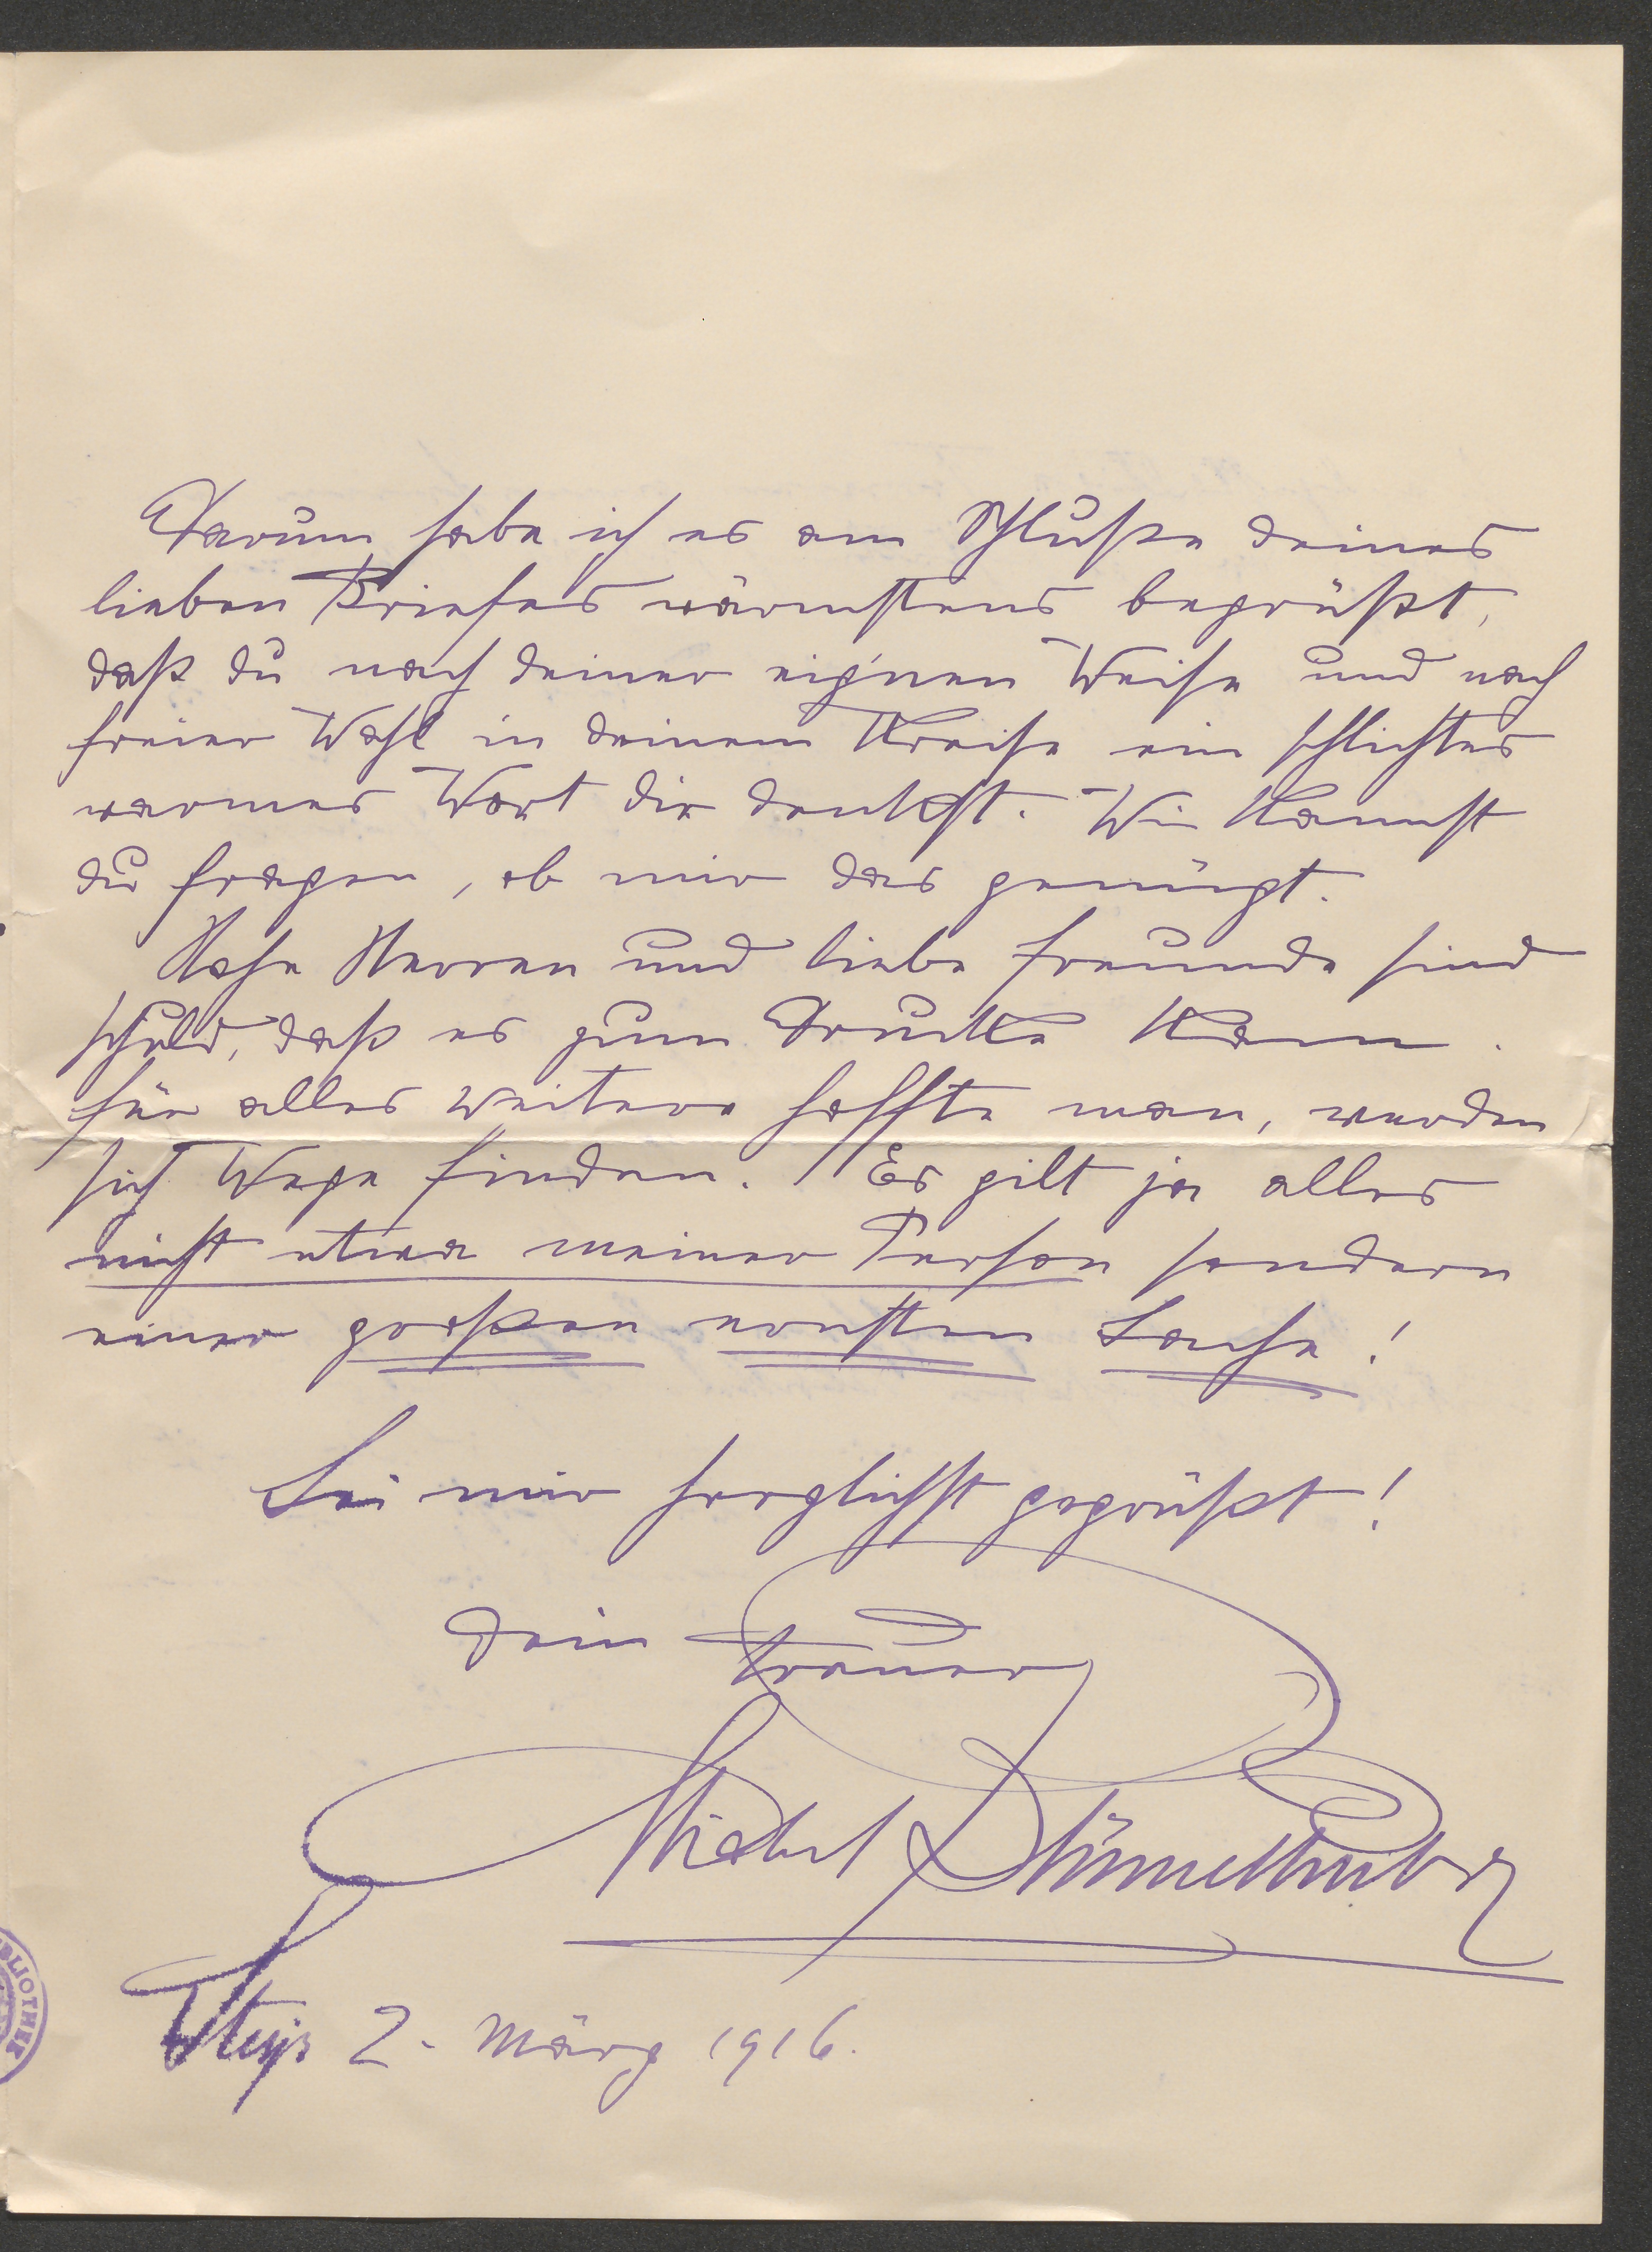 Darum habe ich es am Schluße deines
lieben Briefes wärmstens begrüßt,
daß du nach deiner eig'nen Weise und nach
freier Wahl in deinem Kreise ein schlichtes
warmes Wort dir denkst. Wie kannst
du fragen, ob mir das genügt.
Hohe Herren und liebe Freunde sind
schuld, daß es zum Drucke kam.
Für alles weitere hoffte man, werden
sich Wege finden. Es gilt ja alles
nicht etwa meiner Person sondern
einer großen ernsten Sache!
Sei mir herzlichst gegrüßt!
Dein treuer
Michael Blümelhuber
Steyr 2. März 1916.
BLIOTHEK